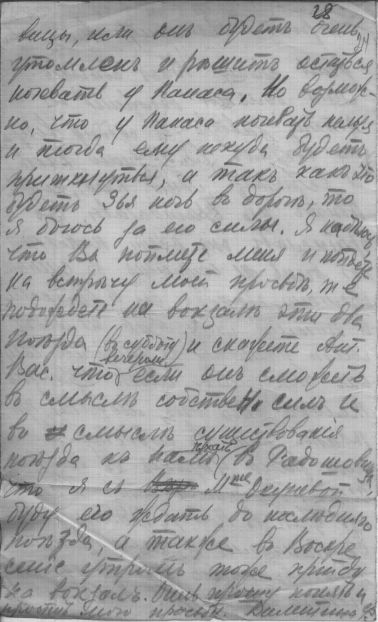 28
вицы, если онъ будетъ очень
утомленъ и рѣшитъ остаться
ночевать у Панаса. Но возмож-
но, что у Панаса ночевать нельзя
и тогда ему некуда будетъ
приткнуться, и такъ какъ это
будетъ 3ья ночь въ дорогѣ, то
я боюсь за его силы. Я надѣюсь
что Вы поймете меня и пойдете
на встрѣчу моей просьбѣ, т.е.
подождете на вокзалѣ эти два
поѣзда (въ субботу вечеромъ) и скажете Ант.
Вас. что если онъ сможетъ
въ смыслѣ собственныхъ силъ и
въ смыслѣ существованія
поѣзда къ намъ въ Радошовицы,
что я съ Mme Окуневой
буду его ждать до послѣдняго
поѣзда, а также въ Воскре
сенье утромъ тоже приду
на вокзалъ. прошу понять и
простить мою просьбу.